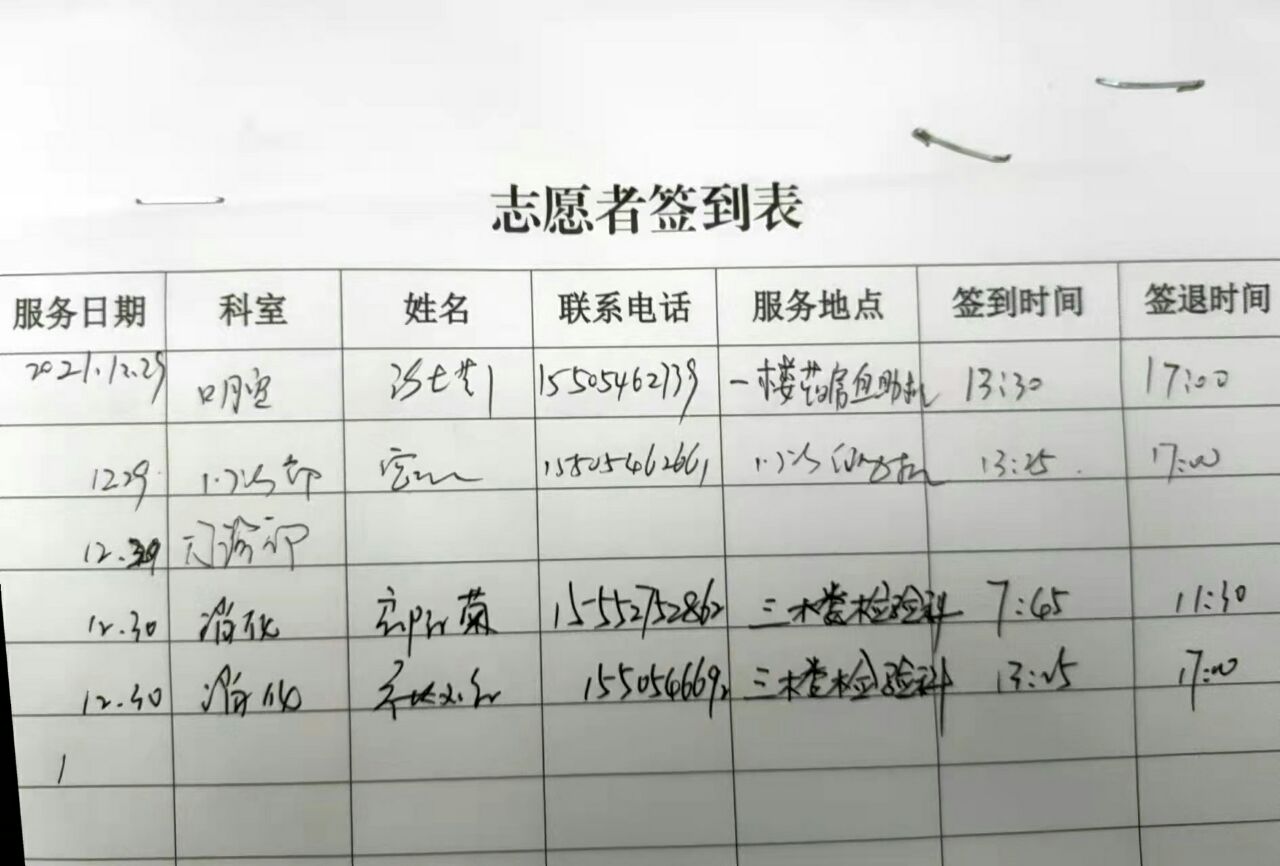 志愿者签到表
服务日期 科室 姓名 联系电话 服务地点 签到时间 签退时间
2021.12.29 口腔 15505462739 一楼药房自助机 13:30 17:00
1229 门诊部 15505462661 门诊 13:25 17:00
12.29 门诊部
12.30 消化 菊 15552752862 三楼检验科 7:45 11:30
12.30 消化 三楼检验科 13:25 17:00
1